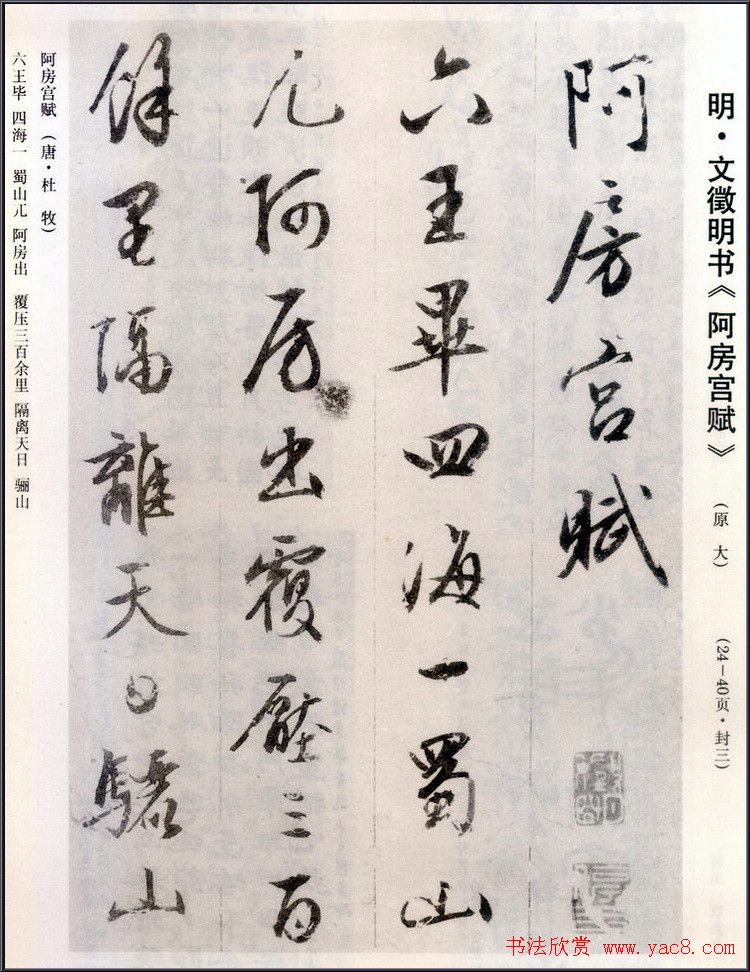 明·文徵明书《阿房宫赋》 (原大) (24—40页·封三)
阿房宫赋
六王畢四海一蜀山
兀阿房出覆壓三百
餘里隔離天日驪山
阿房宫赋(唐·杜 牧)
六王毕 四海一 蜀山兀 阿房出 覆压三百余里 隔离天日 骊山
书法欣赏 www.yac8.com